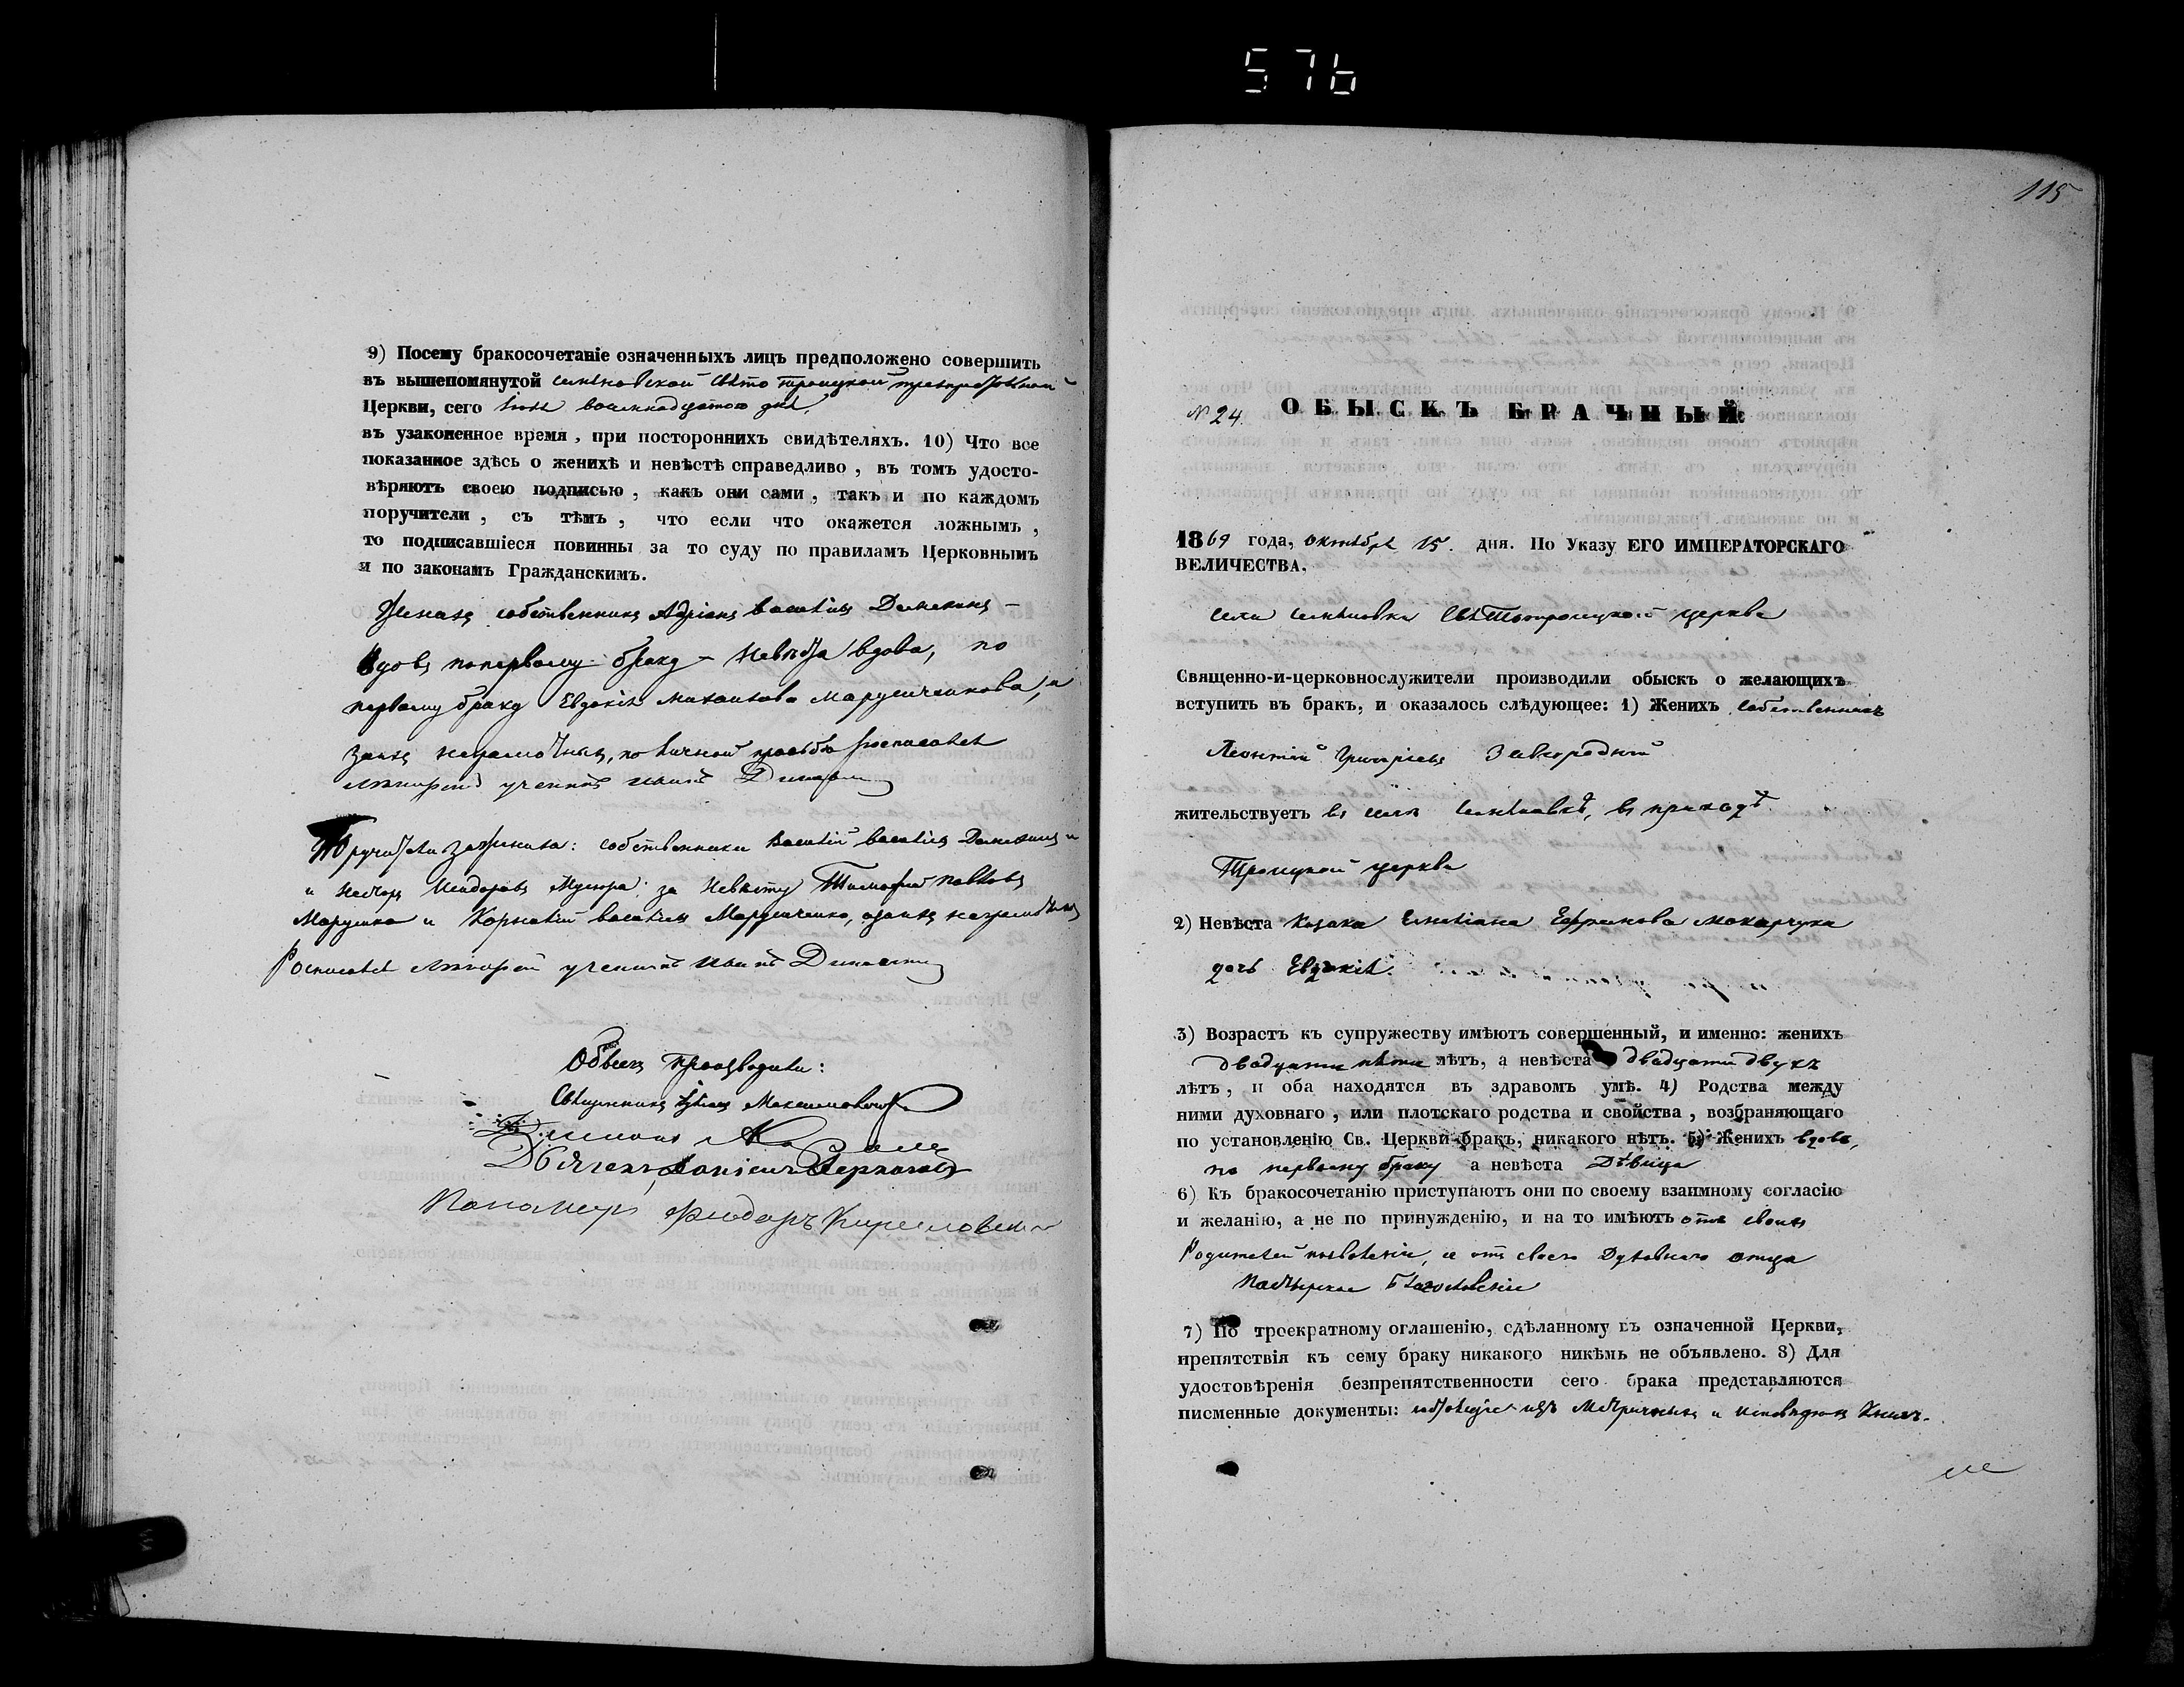 576
9) Посему бракосочетаніе означенныхъ лицъ предположено совершить
въ вышепомянутой Свято Троицкой
Церкви, сего дня
въ узаконенное время, при постороннихъ свидѣтеляхъ. 10) Что все
показанное здѣсь о женихѣ и невѣстѣ справедливо, въ томъ удосто-
вѣряютъ своею подписью, какъ они сами, такъ и по каждомъ
поручители, съ тѣмъ, что если что окажется ложнымъ,
то подписавшіеся повинны за то суду по правиламъ Церковнымъ
и по законамъ Гражданскимъ.
Женихъ собственникъ Адріанъ Васильевъ
Вдовъ по первому браку – Невѣста вдова, по
первому браку Евдокія Михайлова Марусиченкова, а
неграмотныхъ, по личной просьбѣ росписался
Поручители за жениха: собственники Василій Васильевъ
и за Невѣсту Тимофей Павловъ
и Корнилій Васильевъ Марусиченко, а за нихъ неграмотныхъ
Росписался
Обыскъ производили:
Священникъ Максимовичъ
Дьячекъ Даніилъ
Пономарь Ѳеодоръ
115
№ 24. ОБЫСКЪ БРАЧНЫЙ.
1869 года, октября 15. дня. По Указу ЕГО ИМПЕРАТОРСКАГО
ВЕЛИЧЕСТВА.
села Свято троицкой церкви
Священно-и-церковнослужители производили обыскъ о желающихъ
вступить въ бракъ, и оказалось слѣдующее: 1) Женихъ собственникъ
Леонтій Григорьевъ Завгородній
жительствуетъ въ селѣ въ приходѣ
Троицкой церкви
2) Невѣста Козака Емиліана Ефимова Макарчука
дочь Евдокія
3) Возрастъ къ супружеству имѣютъ совершенный, и именно: женихъ
двадцати пяти лѣтъ, а невѣста двадцати двухъ
лѣтъ, и оба находятся въ здравомъ умѣ. 4) Родства между
ними духовнаго, или плотскаго родства и свойства, возбраняющаго
по установленію Св. Церкви бракъ, никакого нѣтъ. 5) Женихъ вдовъ,
по первому браку а невѣста Дѣвица
6) Къ бракосочетанію приступаютъ они по своему взаимному согласію
и желанію, а не по принужденію, и на то имѣютъ отъ своихъ
Родителей позволеніе, и отъ своего Духовнаго отца
Пастырское Благословеніе
7) По троекратному оглашенію, сдѣланному въ означенной Церкви,
препятствія къ сему браку никакого никѣмъ не объявлено. 8) Для
удостовѣренія безпрепятственности сего брака представляются
писменные документы: изъ Метричныхъ и Исповѣдныхъ Книгъ.